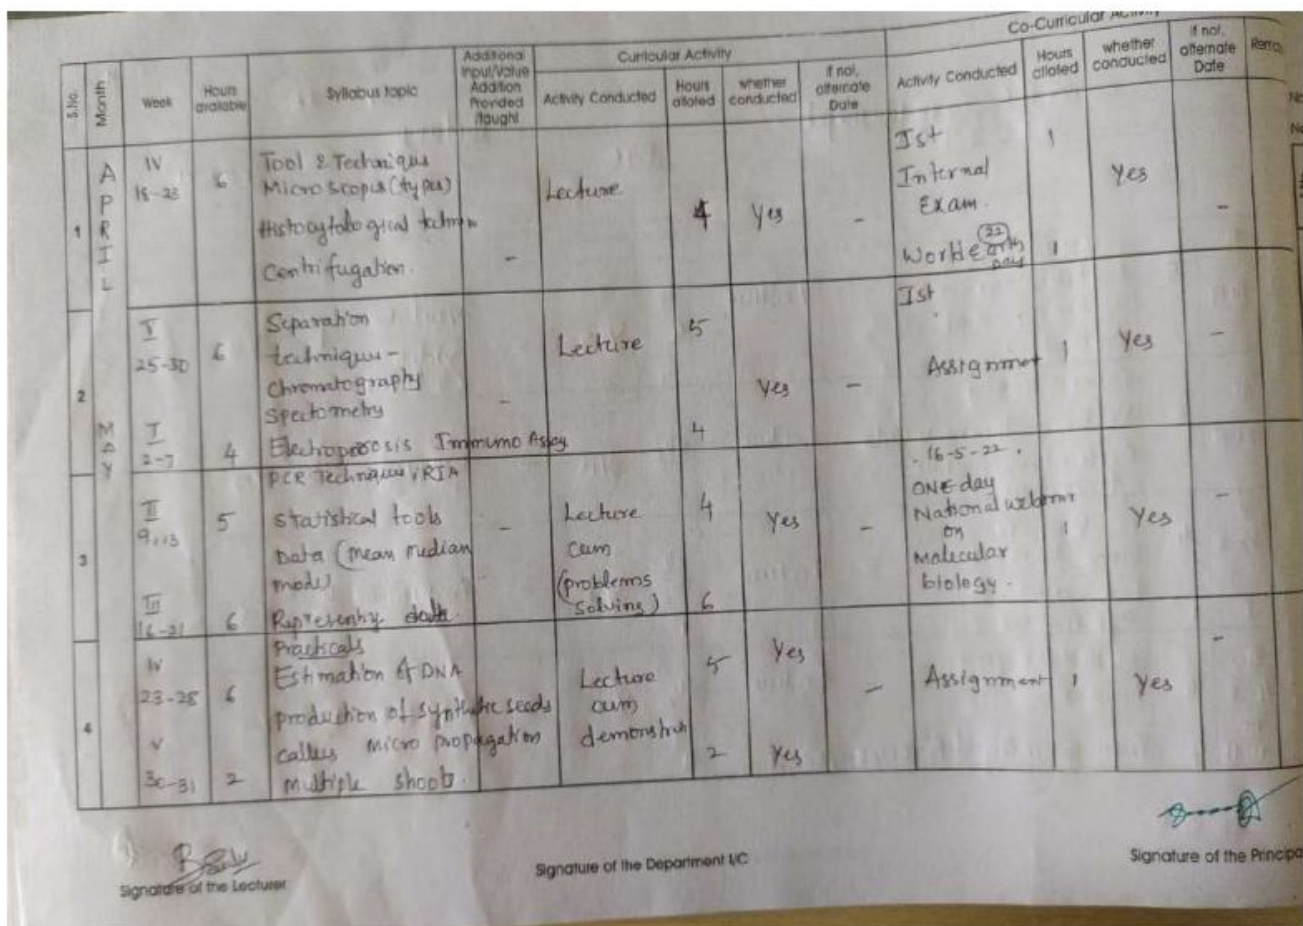 Co-Curricular Activity
Curricular Activity
S.No.
Month
Week
Hours available
Syllabus topic
Additional Input/Value Addition Provided /taught
Activity Conducted
Hours alloted
whether conducted
If not, alternate Date
Activity Conducted
Hours alloted
whether conducted
If not, alternate Date
1
APRIL
IV
18-23
6
Tool & Techniques
Microscopes (types)
Centrifugation.
-
Lecture
4
Yes
-
Ist
Internal
Exam.
1
22
World Earth
Day
1
Yes
-
2
V
25-30
6
Separation
techniques -
Chromatography
Spectometry
-
Lecture
5
Yes
-
Ist
Assignment
1
Yes
-
MAY
I
2-7
4
Immuno Assay
4
3
PCR Techniques, RIA
II
5
Statistical tools
Data (mean median
mode)
-
Lecture
cum
(problems
solving)
4
Yes
-
16-5-22.
ONE day
National webinar
on
Molecular
biology.
1
Yes
-
III
16-21
6
6
4
Practicals
IV
23-28
6
Estimation of DNA
production of synthetic seeds
callus micro propagation
multiple shoots.
Lecture
cum
5
Yes
-
Assignment
1
Yes
-
V
30-31
2
2
Yes
Signature of the Lecturer
Signature of the Department I/C
Signature of the Principa